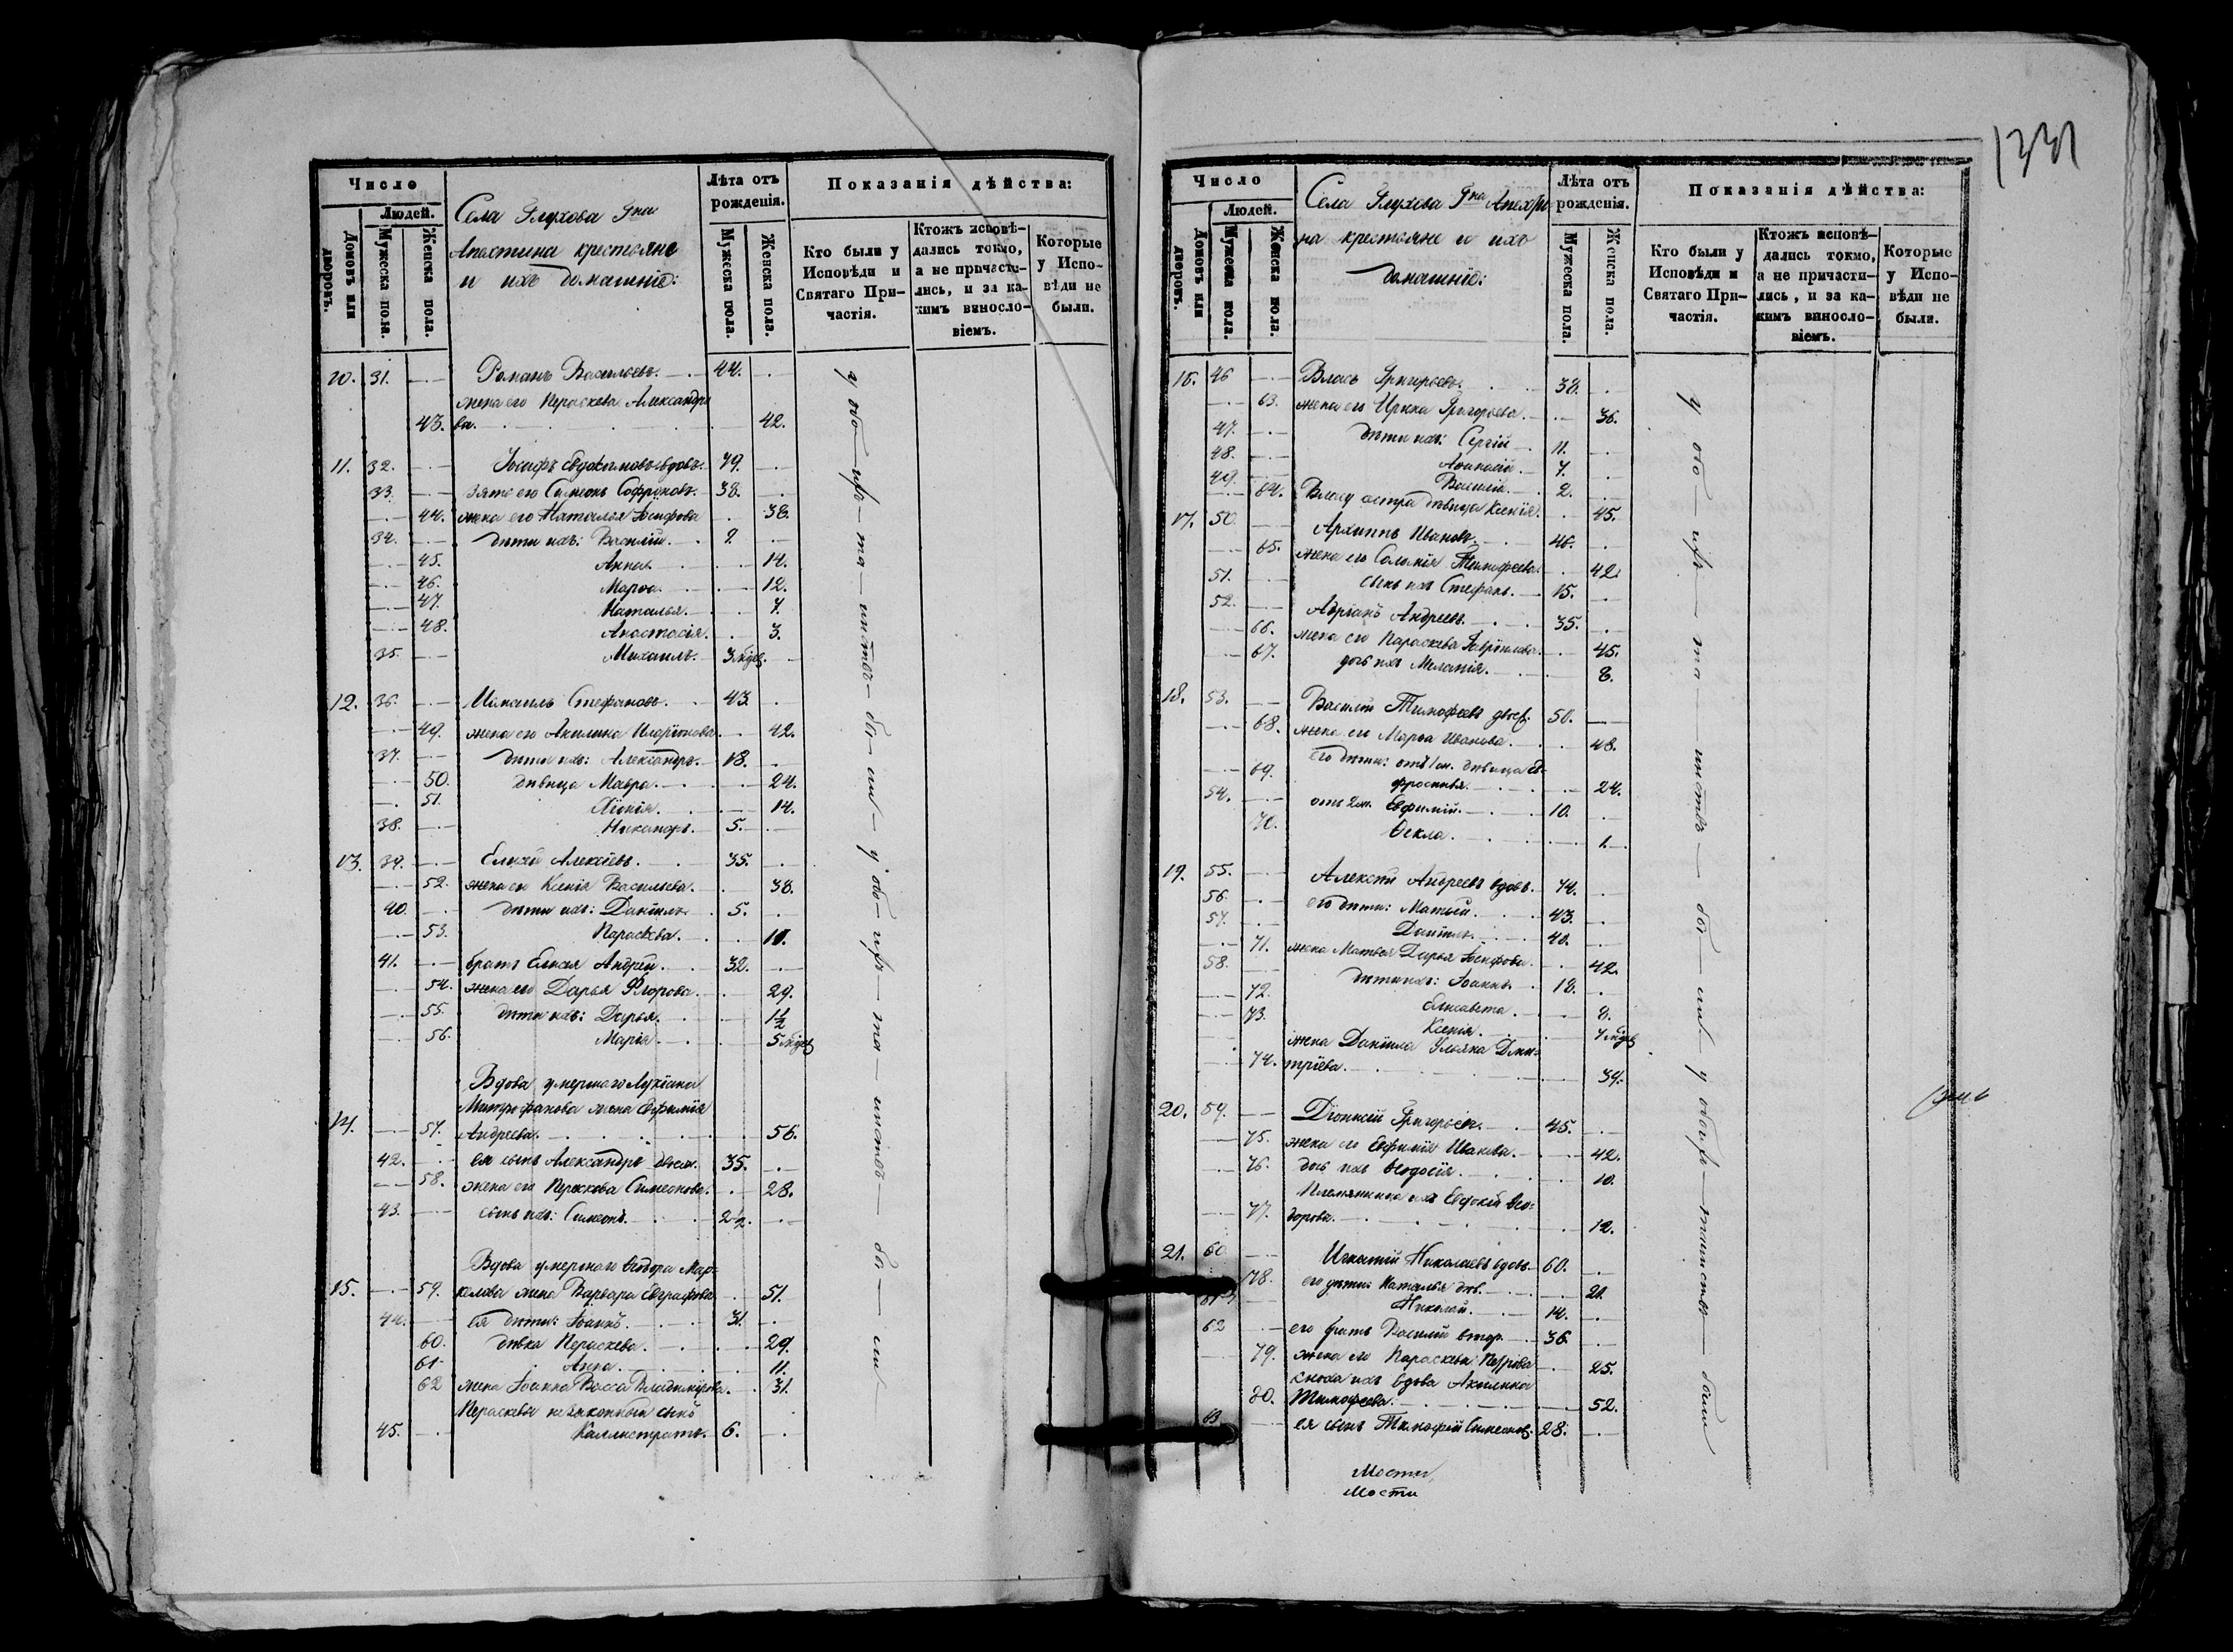 Число
Людей.
Домовъ или дворовъ.
Мужеска пола.
Женска пола.
Села Глухова Гна
Апахтина крестьяне
и ихъ домашнiе:
Лѣта отъ рожденiя.
Мужеска пола.
Женска пола.
Показанiя дѣйства:
Кто были у Исповѣди и Святаго Причастiя.
Ктожъ исповѣдались токмо, а не причастились, и за какимъ винословiемъ.
Которые у Исповѣди не были.
10. 31. Романъ Васильевъ. 44.
жена его Пераскева Александро
43. ва. 42.
11. 32. Iосифъ Евдокимовъ вдовъ. 79.
33. зять его Симеонъ Софроновъ. 38.
44. жена его Наталья Iосифова 38.
34. дѣти ихъ: Василiй. 9.
45. Анна. 14.
46. Марѳа. 12.
47. Наталья. 7.
48. Анастасiя. 3.
35. Михаилъ. 3 нед.
12. 36. Михаилъ Стефановъ. 43.
49. жена его Акилина Иларiонова. 42.
37. дѣти ихъ: Александръ. 18.
50. дѣвица Мавра. 24.
51. Хiонiя. 14.
38. Никаноръ. 5.
13. 39. Елисей Алексѣевъ. 35.
52. жена его Ксенiя Васильева. 38.
40. дѣти ихъ: Данiилъ. 5.
53. Параскева. 11.
41. братъ Елисея Андрей. 32.
54. жена его Дарья Флорова. 29.
55. дѣти ихъ: Дарья. 1½
56. Марiя. 5 нед.
Вдова умершаго Лукiана
Митрофанова жена Евфимiя
14. 57. Андреева. 56.
42. ея сынъ Александръ двоеж. 35.
58. жена его Пераскева Симеонова. 28.
43. сынъ ихъ: Симеонъ. 2½.
Вдова умершаго Ѳеодора Мар-
15. 59. келова жена Варвара Евграфова 51.
44. ея дѣти: Iоаннъ. 31.
60. дѣвка Пераскева. 29.
61. Анна. 11.
62 жена Iоанна Васса Владимiрова. 31.
Пераскевы незаконный сынъ
45. Каллистратъ. 6.
у ого-исп-то-инств-бы-ли-у ого-исп-то-инств-бы-ли
1331
Число
Людей.
Домовъ или дворовъ.
Мужеска пола.
Женска пола.
Села Глухова Гна Апахти
на крестьяне и ихъ
домашнiе:
Лѣта отъ рожденiя.
Мужеска пола.
Женска пола.
Показанiя дѣйства:
Кто были у Исповѣди и Святаго Причастiя.
Ктожъ исповѣдались токмо, а не причастились, и за какимъ винословiемъ.
Которые у Исповѣди не были.
16. 46 Власъ Григорьевъ. 38.
63. жена его Ирина Григорьева. 36.
47. дѣти ихъ: Сергiй 11.
48. Аѳанасiй. 7.
49. Василiй. 2.
64. Власу сестра дѣвица Ксенiя. 45.
17. 50. Архиппъ Ивановъ. 46.
65. жена его Соломiя Тимофеева. 42.
51. сынъ ихъ Стефанъ. 15.
52. Адрiанъ Андреевъ. 35.
66. жена его Параскева Гаврiилова. 45.
67. дочь ихъ Меланiя. 8.
18. 53. Василiй Тимофеевъ двоеж. 50.
68. жена его Марѳа Иванова. 48.
его дѣти: отъ 1 ж. дѣвица Ев-
69. фросинья. 24.
54. отъ 2 ж. Евфимiй. 10.
70. Ѳекла. 1.
19. 55. Алексѣй Андреевъ вдовъ. 74.
56. его дѣти: Матвей. 43.
57. Данiилъ. 40.
71. жена Матвея Дарья Iосифова. 42.
58. дѣти ихъ: Iоаннъ. 18.
72. Елисавета. 8.
73. Ксенiя. 7 нед.
жена Данiила Ульяна Дми-
74. трiева. 39.
20. 59. Дiонисiй Григорьевъ. 45.
75. жена его Евфимiя Иванова. 42.
76. дочь ихъ Ѳеодосiя. 10.
Племянница ихъ Евдокiя Ѳео-
77. дорова. 12.
21. 60 Игнатiй Николаевъ вдовъ 60.
78. его дѣти: Наталья дѣв. 21.
61 Николай. 14.
62 его братъ Василiй втор. 36.
79. жена его Параскева Петрова 25.
сноха ихъ вдова Акилина
80. Тимофеева. 52.
63 ея сынъ Тимофей Симеоновъ. 28.
у ого-исп-то-инств-бы-ли-у